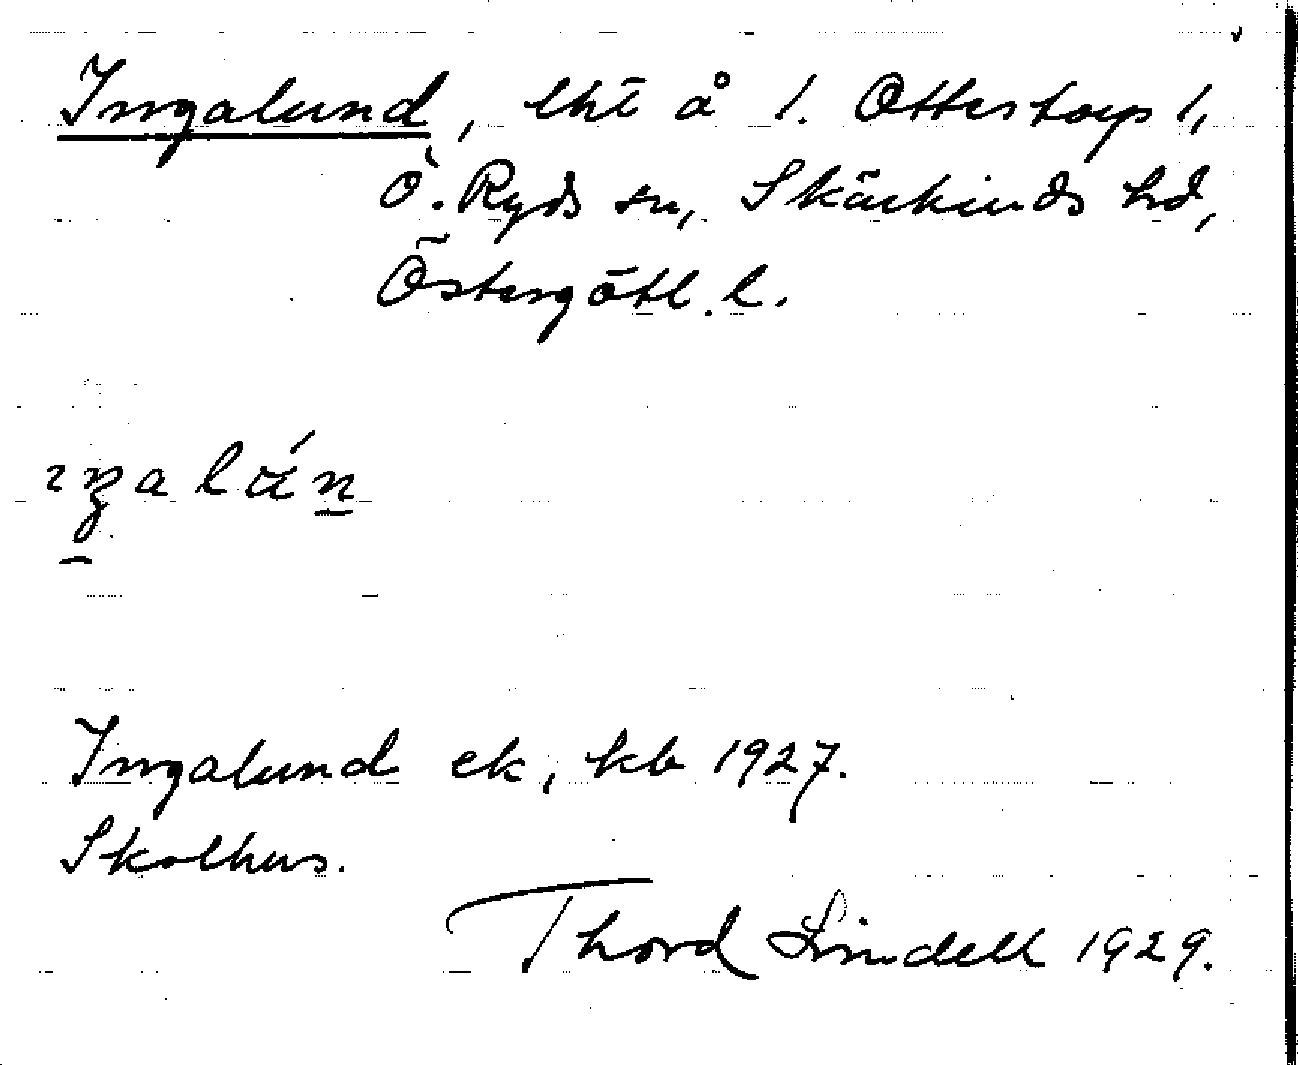 Ingalund, lht å 1. Otterstorp 1,
Ö. Ryds sn, Skärkinds hd,
Östergötl. l.
Ingalund ek, kb 1927.
Skolhus.
Thord Lindell 1929.